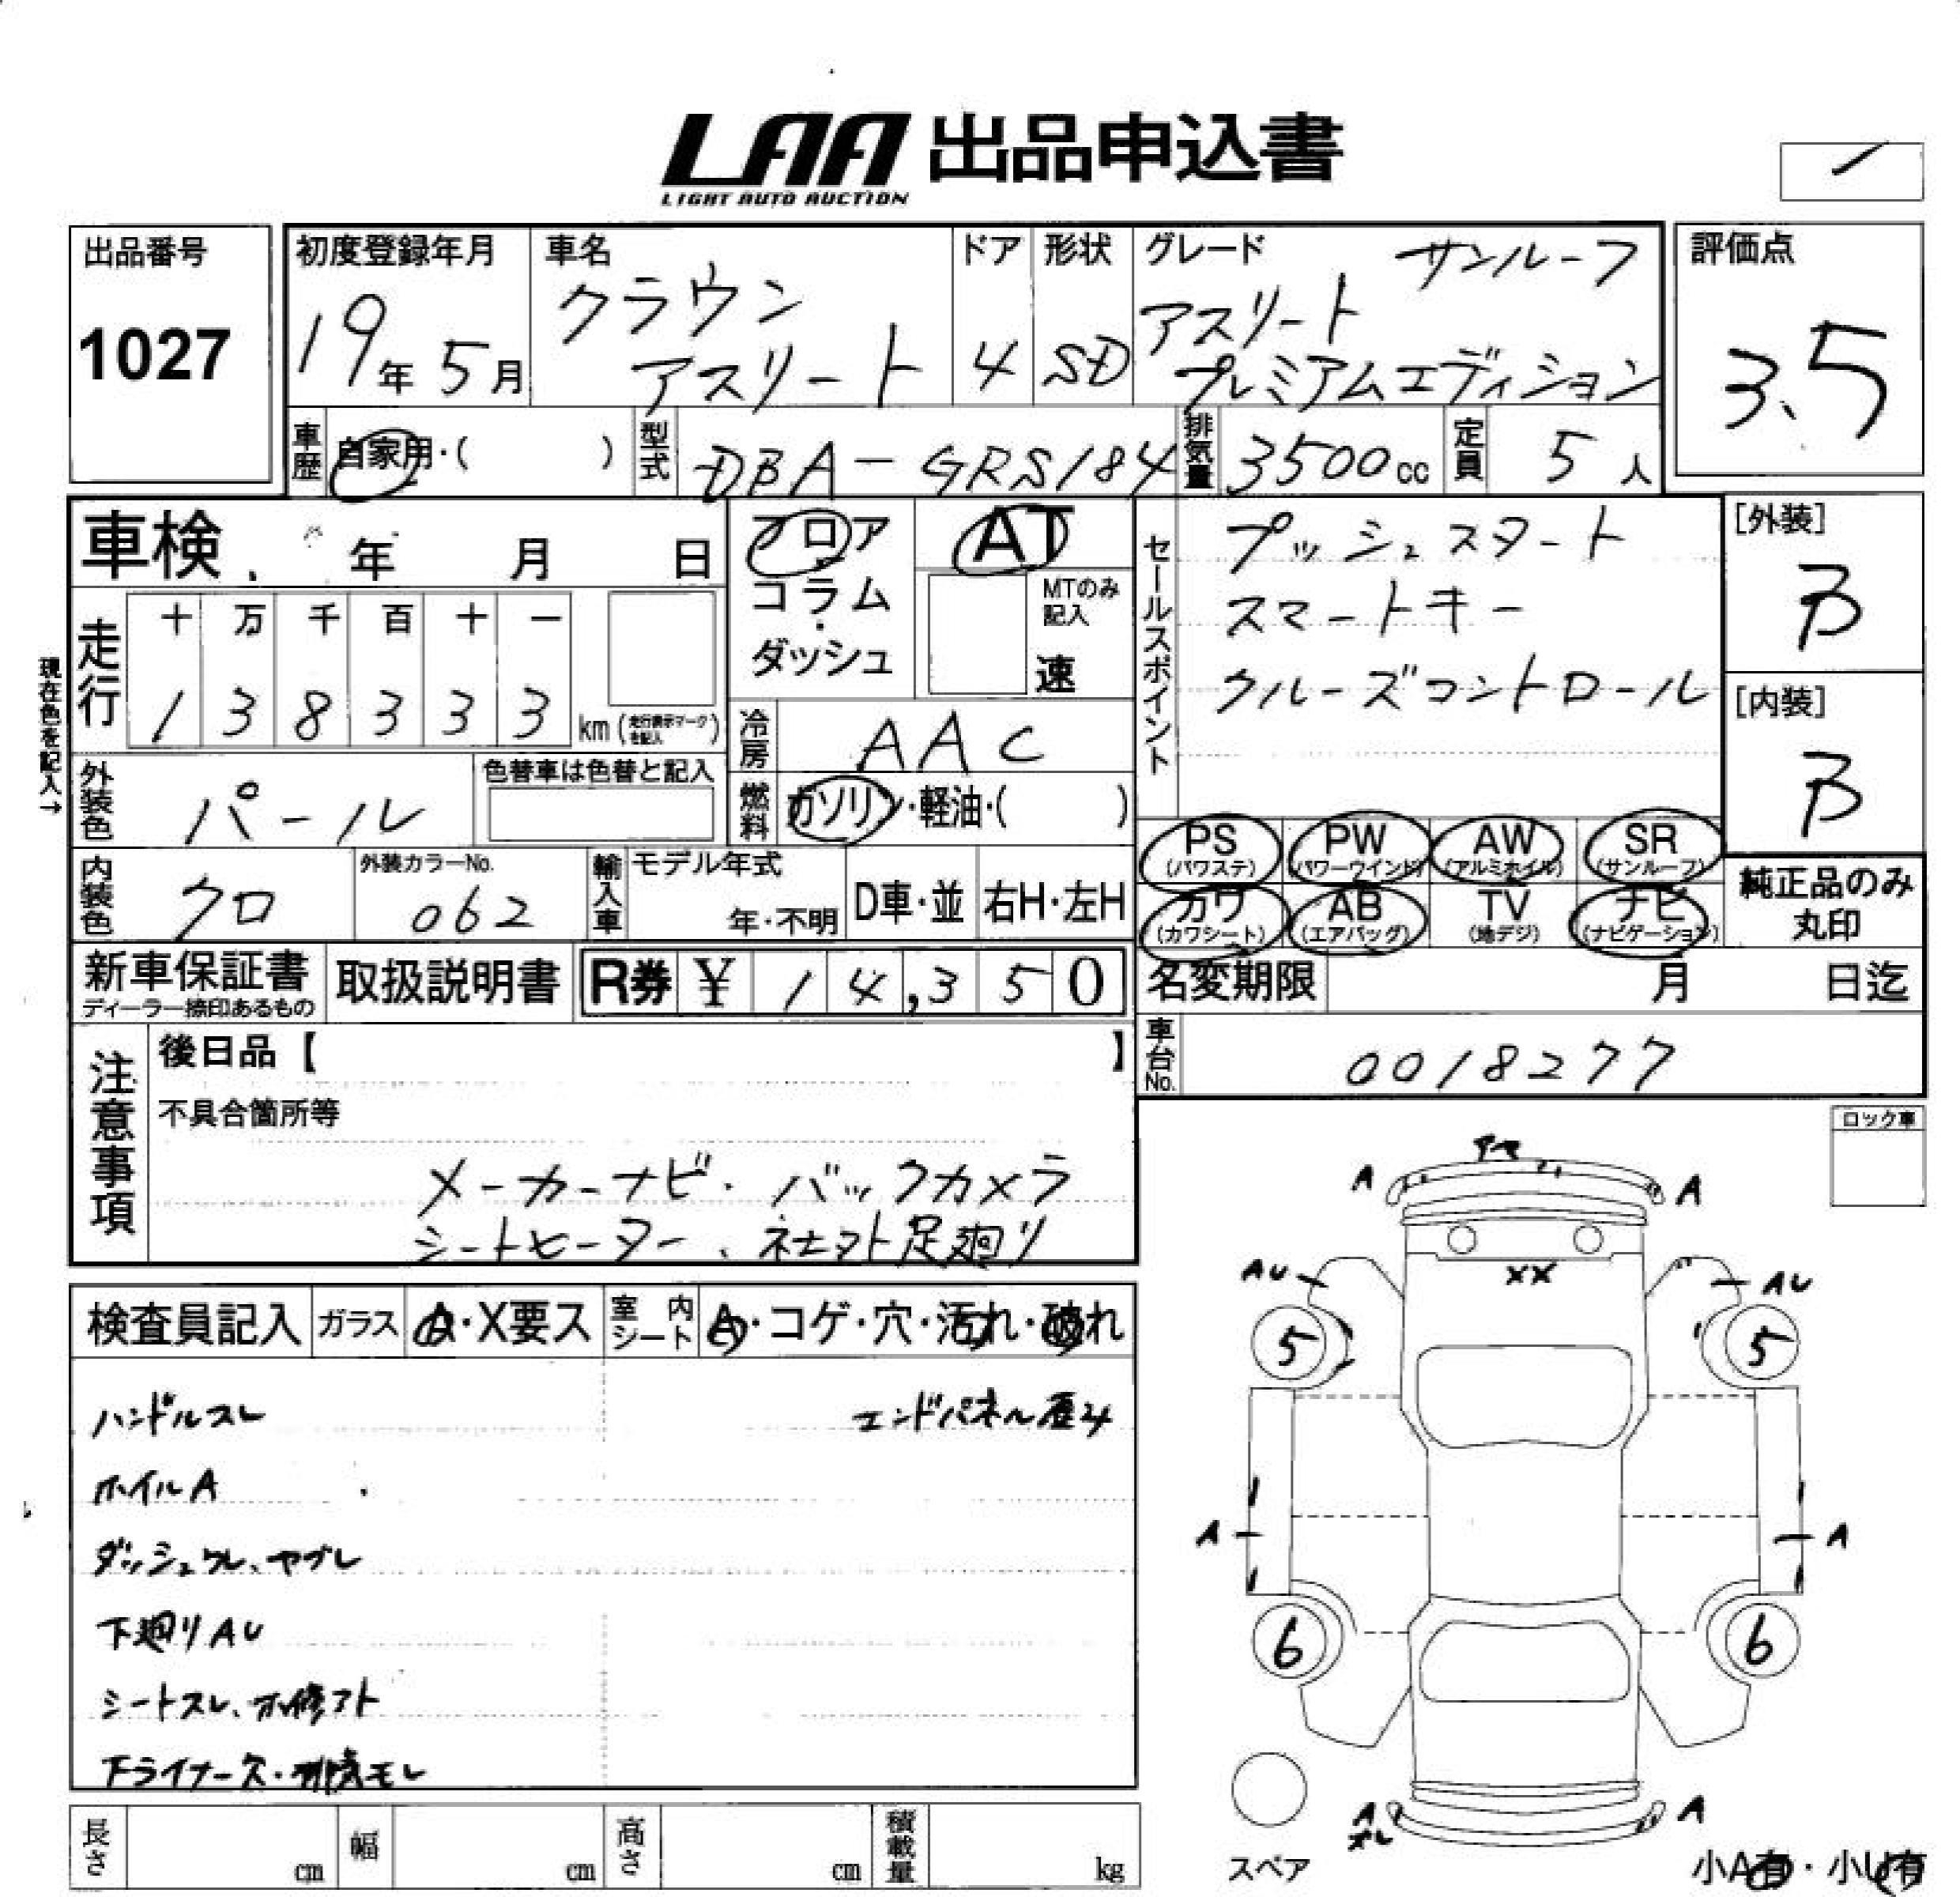 LAA 出品申込書
LIGHT AUTO AUCTION
出品番号
1027
初度登録年月
19年 5月
車名
クラウン
アスリート
ドア
4
形状
SD
グレード サンルーフ
アスリート
プレミアムエディション
評価点
3.5
車歴 自家用・( )
型式 DBA-GRS184
排気量 3500cc
定員 5人
車検 年 月 日
走行
十 万 千 百 十 一
1 3 8 3 3 3 km (走行表示マークを記入)
現在色を記入→
外装色 パール
色替車は色替と記入
内装色 クロ
外装カラーNo.
062
フロア
コラム
ダッシュ
AT
MTのみ記入
速
冷房 AAC
燃料 ガソリン・軽油・( )
輸入車 モデル年式
年・不明
D車・並
右H・左H
セールスポイント
プッシュスタート
スマートキー
クルーズコントロール
[外装]
B
[内装]
B
PS (パワステ)
PW (パワーウインド)
AW (アルミホイル)
SR (サンルーフ)
カワ (カワシート)
AB (エアバッグ)
TV (地デジ)
ナビ (ナビゲーション)
純正品のみ
丸印
新車保証書
ディーラー捺印あるもの
取扱説明書
R券 ¥ 14,350
名変期限 月 日迄
車台No. 0018277
注意事項
後日品【 】
不具合箇所等
メーカーナビ・バックカメラ
シートヒーター、ネセマト足廻り
ロック車
検査員記入
ガラス A・X要ス
室内シート A・コゲ・穴・汚れ・破れ
ハンドルスレ
エンドパネル歪み
ホイルA
ダッシュワレ、ヤブレ
下廻りAU
シートスレ、
下ライナー欠・排気モレ
長さ cm
幅 cm
高さ cm
積載量 kg
A
A
AU
XX
AU
5
5
A
A
6
6
A
A
スペア
小A有・小U有